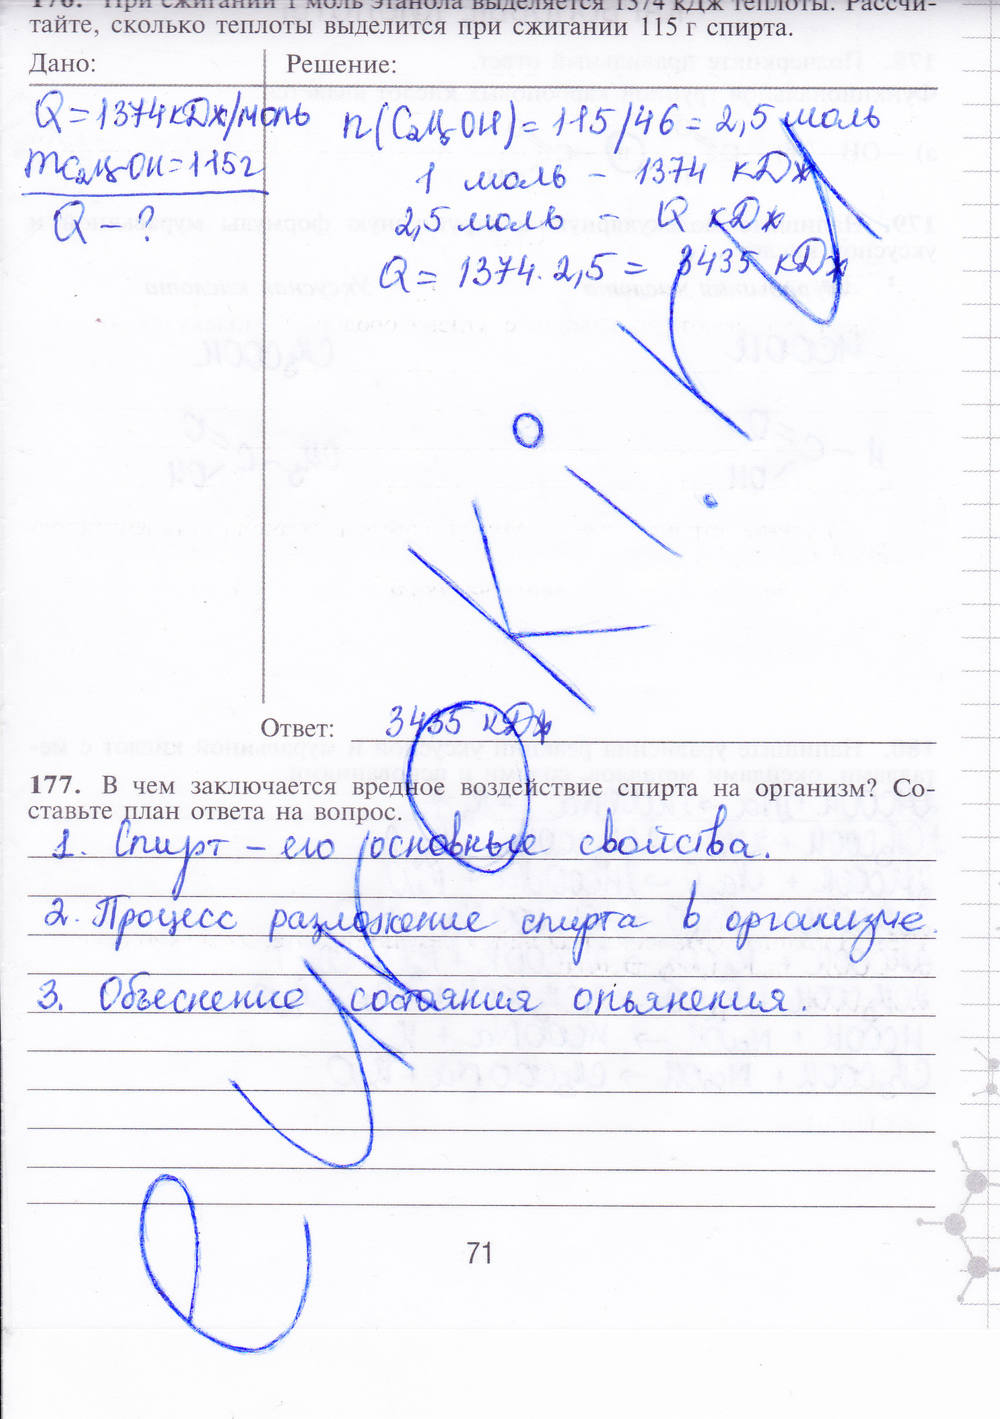 176. При сжигании 1 моль этанола выделяется 1374 кДж теплоты. Рассчи-
тайте, сколько теплоты выделится при сжигании 115 г спирта.
Дано:
Решение:
Q = 1374 кДж/моль
mC₂H₅OH = 115 г
Q – ?
n(C₂H₅OH) = 115/46 = 2,5 моль
1 моль – 1374 кДж
2,5 моль – Q кДж
Q = 1374 · 2,5 = 3435 кДж
Ответ: 3435 кДж
177. В чем заключается вредное воздействие спирта на организм? Со-
ставьте план ответа на вопрос.
1. Спирт – его основные свойства.
2. Процесс разложение спирта в организме.
3. Объеснение состояния опьянения.
71